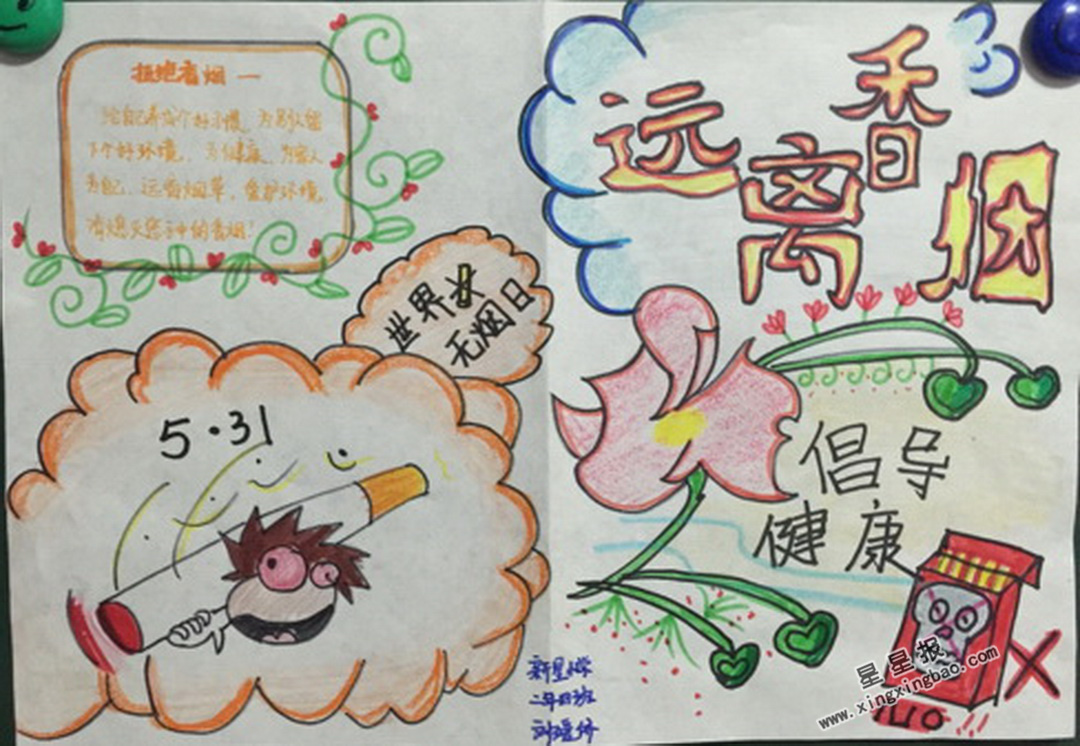 拒绝香烟一
给自己养成个好习惯，为朋友留
下个好环境，为健康，为家人
为自己，远香烟草，爱护环境，
请熄灭您手中的香烟！
远离香烟
世界
无烟日
5·31
倡导
健康
新星小学
二年四班
星星报
www.xingxingbao.com